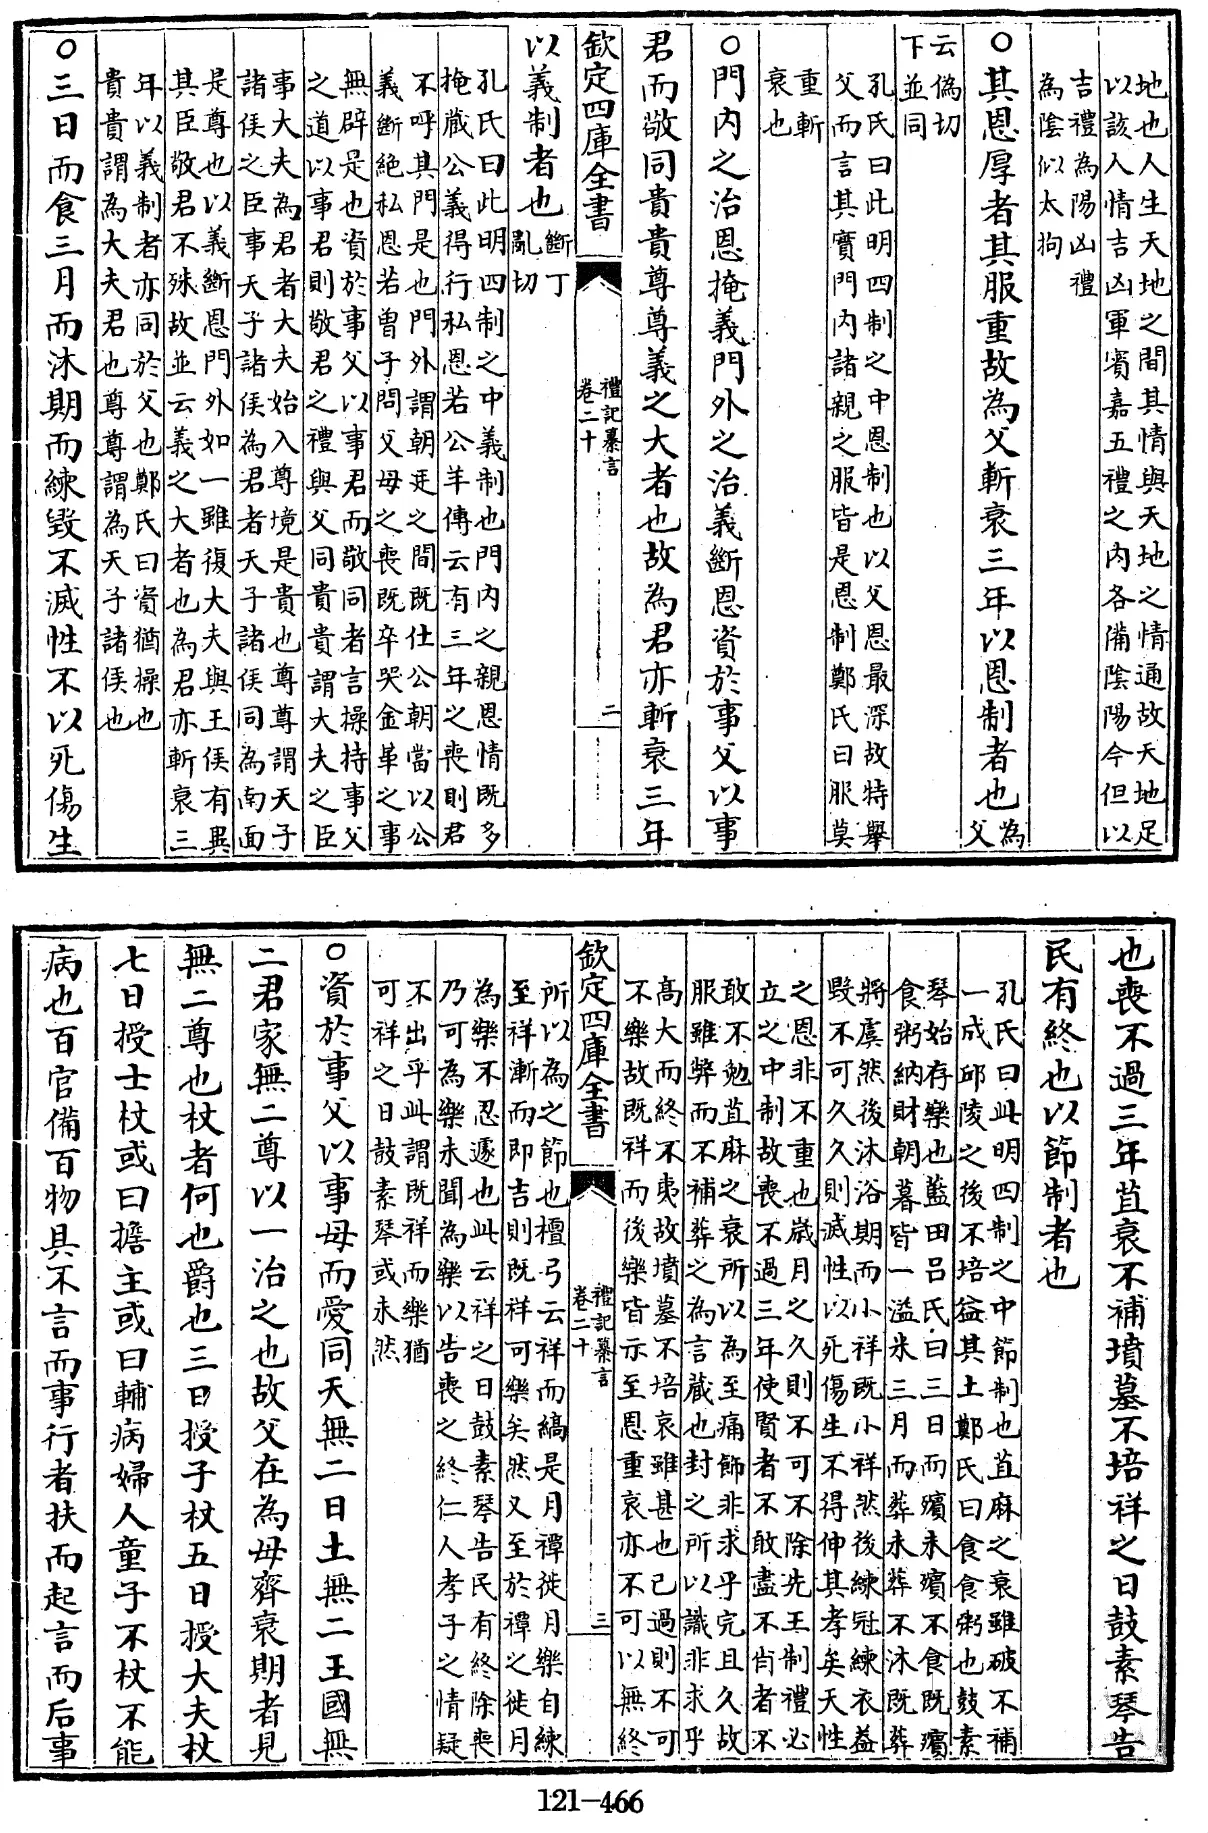 地也人生天地之間其情與天地之情通故天地足
以該入情吉凶軍賓嘉五禮之内各備陰陽今但以
吉禮為陽凶禮
為陰似太拘
○其恩厚者其服重故為父斬衰三年以恩制者也為
父
云偽切
下並同
孔氏曰此明四制之中恩制也以父恩最深故特舉
父而言其實門内諸親之服皆是恩制鄭氏曰服莫
重斬
衰也
○門内之治恩掩義門外之治義斷恩資於事父以事
君而敬同貴貴尊尊義之大者也故為君亦斬衰三年
欽定四庫全書
禮記纂言
卷二十
二
以義制者也斷丁
亂切
孔氏曰此明四制之中義制也門内之親恩情既多
掩蔵公義得行私恩若公羊傳云有三年之喪則君
不呼其門是也門外謂朝廷之間既仕公朝當以公
義斷絶私恩若曾子問父母之喪既卒哭金革之事
無辟是也資於事父以事君而敬同者言操持事父
之道以事君則敬君之禮與父同貴貴謂大夫之臣
事大夫為君者大夫始入尊境是貴也尊尊謂天子
諸侯之臣事天子諸侯為君者天子諸侯同為南面
是尊也以義斷恩門外如一雖復大夫與王侯有異
其臣敬君不殊故並云義之大者也為君亦斬衰三
年以義制者亦同於父也鄭氏曰資猶操也
貴貴謂為大夫君也尊尊謂為天子諸侯也
○三日而食三月而沐期而練毀不滅性不以死傷生
也喪不過三年苴衰不補墳墓不培祥之日鼓素琴告
民有終也以節制者也
孔氏曰此明四制之中節制也苴麻之衰雖破不補
一成邱陵之後不培益其土鄭氏曰食食粥也鼓素
琴始存樂也藍田吕氏曰三日而殯未殯不食既殯
食粥納財朝暮皆一溢米三月而葬未葬不沐既葬
將虞然後沐浴期而小祥既小祥然後練冠練衣益
毀不可久久則滅性以死傷生不得伸其孝矣天性
之恩非不重也歳月之久則不可不除先王制禮必
立之中制故喪不過三年使賢者不敢盡不肖者不
敢不勉苴麻之衰所以為至痛飾非求乎完且久故
服雖弊而不補葬之為言蔵也封之所以識非求乎
高大而終不夷故墳墓不培哀雖甚也已過則不可
不樂故既祥而後樂皆示至恩重哀亦不可以無終
欽定四庫全書
禮記纂言
卷二十
三
所以為之節也檀弓云祥而縞是月禫徙月樂自練
至祥漸而即吉則既祥可樂矣然又至於禫之徙月
為樂不忍遽也此云祥之日鼓素琴告民有終除喪
乃可為樂未聞為樂以告喪之終仁人孝子之情疑
不出乎此謂既祥而樂猶
可祥之日鼓素琴或未然
○資於事父以事母而愛同天無二日土無二王國無
二君家無二尊以一治之也故父在為母齊衰期者見
無二尊也杖者何也爵也三日授子杖五日授大夫杖
七日授士杖或曰擔主或曰輔病婦人童子不杖不能
病也百官備百物具不言而事行者扶而起言而后事
121-466